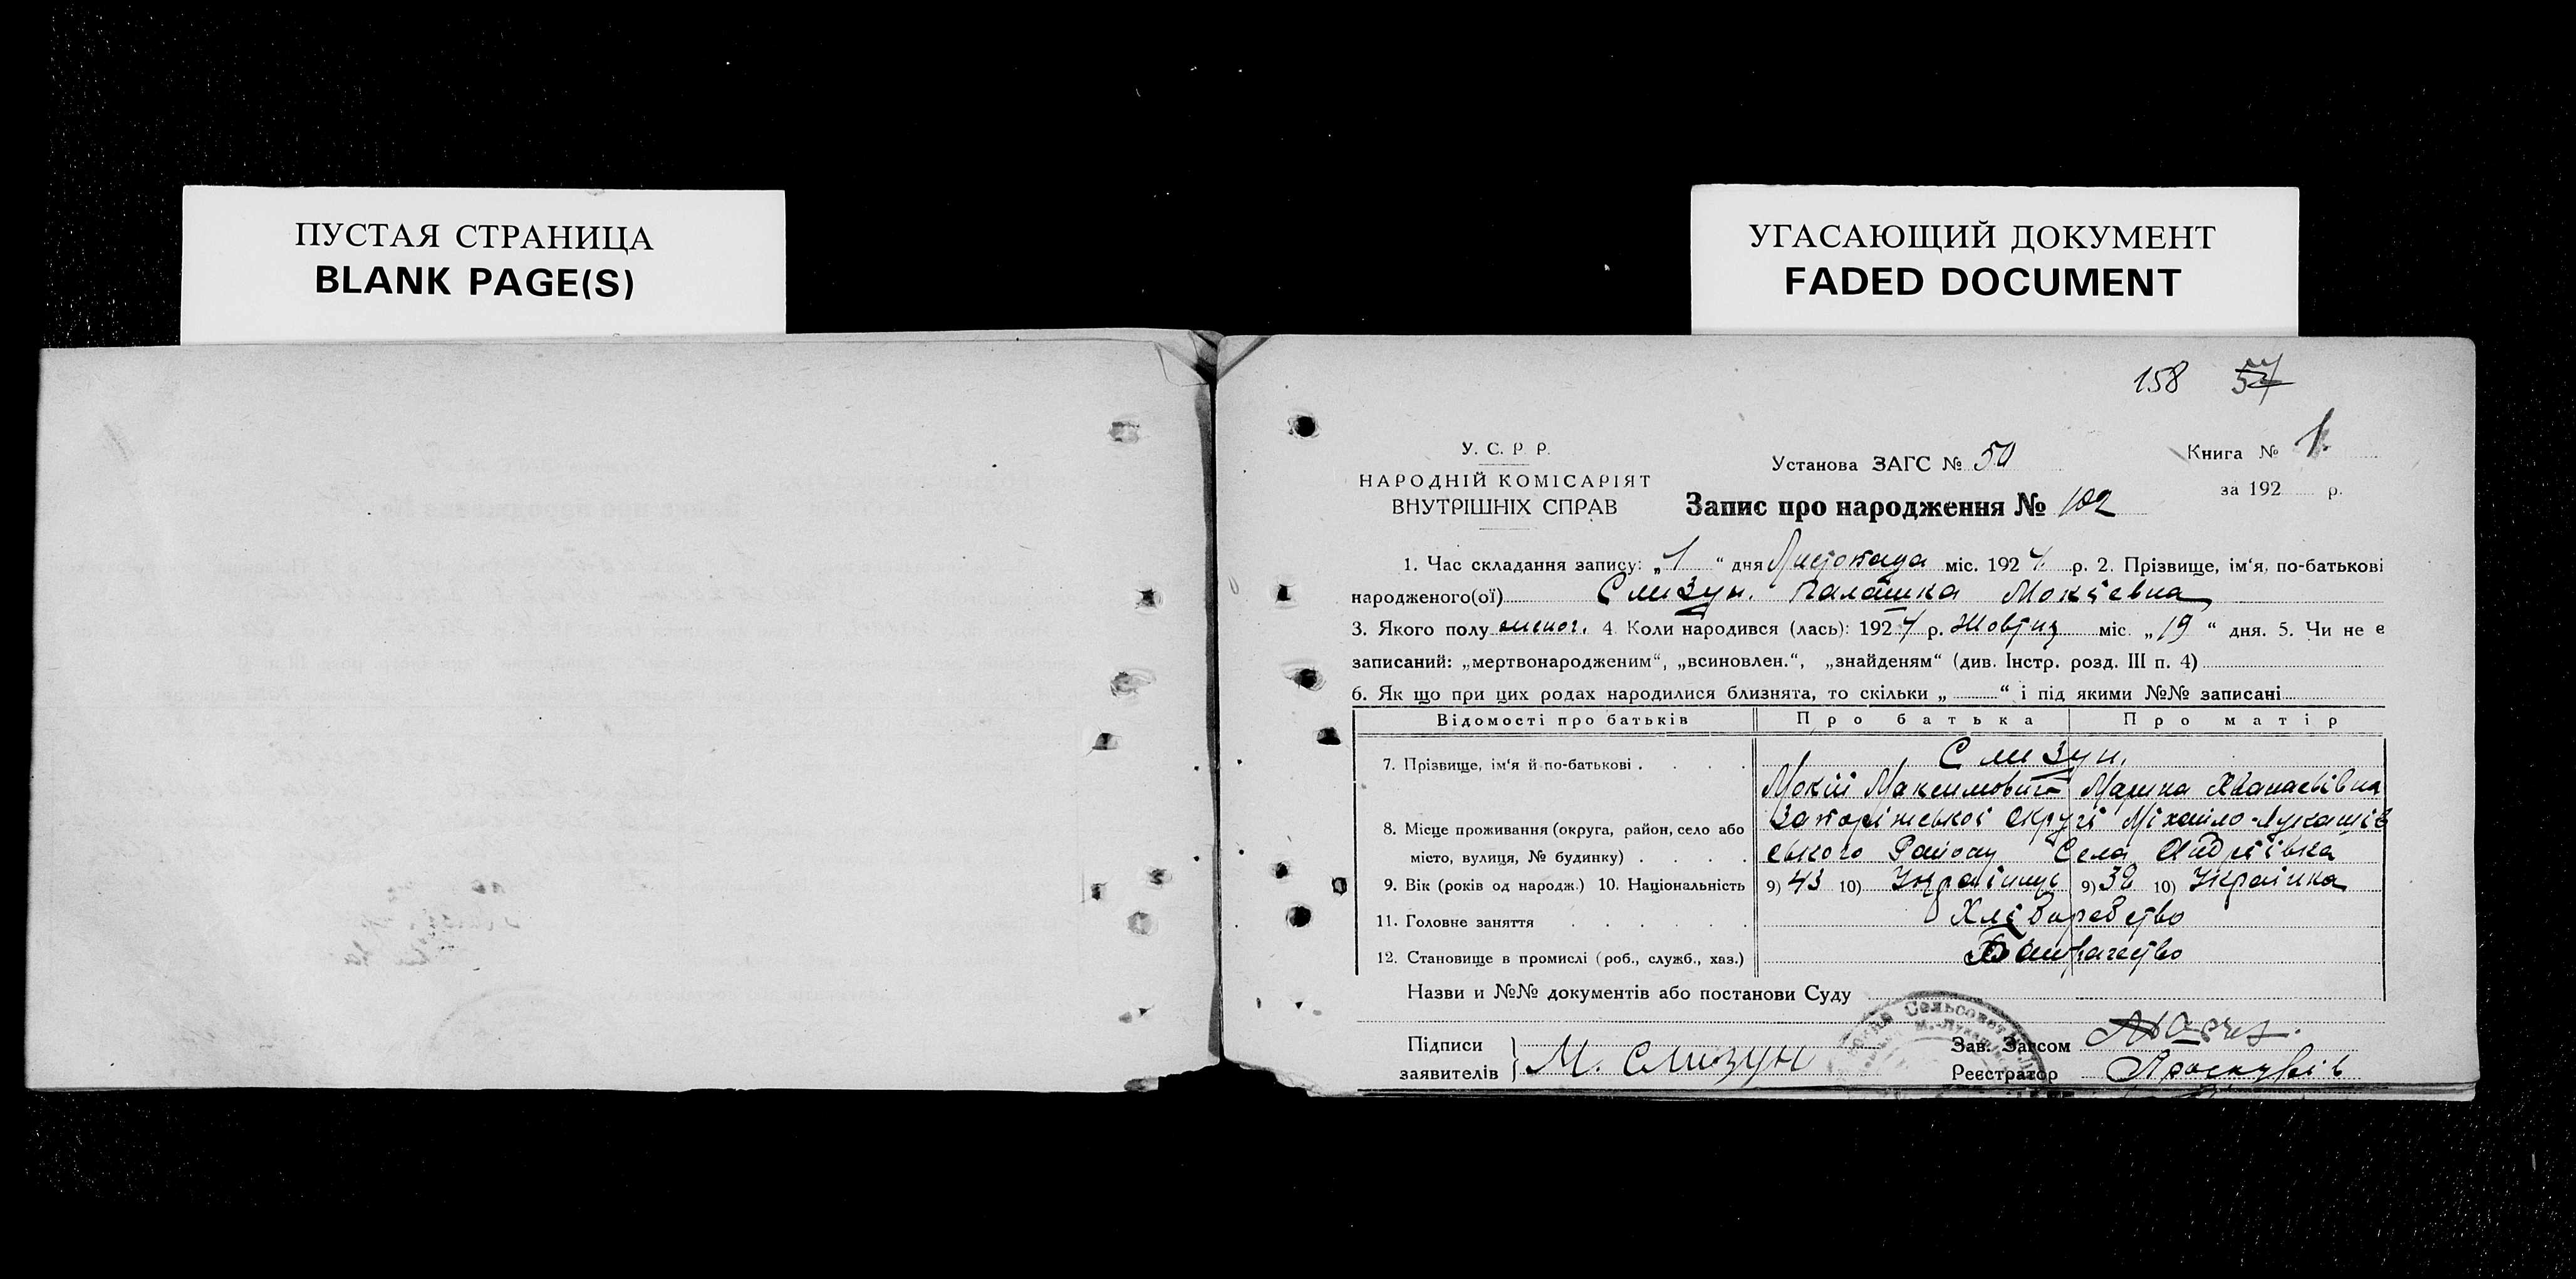 ПУСТАЯ СТРАНИЦА
BLANK PAGE(S)
УГАСАЮЩИЙ ДОКУМЕНТ
FADED DOCUMENT
158 57
У. С. Р Р.
НАРОДНІЙ КОМІСАРІЯТ
ВНУТРІШНІХ СПРАВ
Установа ЗАГС № 50
Запис про народження № 102
Книга № 1.
за 192 р.
1. Час складання запису: „ 1 “ дня Листопада міс. 192 4. р. 2. Прізвище, ім‘я, по-батькові
народженого(ої) Слизун. Палашка Мокіевна
3. Якого полу жіноч. 4. Коли народився (лась): 192 4 р. Жовтня міс. „ 19 “ дня. 5. Чи не є
записаний: „мертвонародженим“, „всиновлен.“, „знайденям“ (див. Інстр. розд. III п. 4)
6. Як що при цих родах народилися близнята, то скільки „ “ і під якими №№ записані
Відомості про батьків Про батька Про матір
7. Прізвище, ім‘я й по-батькові . . . . Слизун.
Мокій Максимович Марина Афанасіівна
8. Місце проживання (округа, район, село або Запоріжської Округі Міхайло-Лукашів
місто, вулиця, № будинку) . . . . ського Району Села Андріївка
9. Вік (років од народж.) 10. Національність 9) 43 10) Українець 9) 38 10) Українка
11. Головне заняття . . . . . . Хліборобство
12. Становище в промислі (роб., служб., хаз.)
Назви и №№ документів або постанови Суду
Підписи
заявителів М. Слизун
Зав. Загсом
Реєстратор
Сельсовет